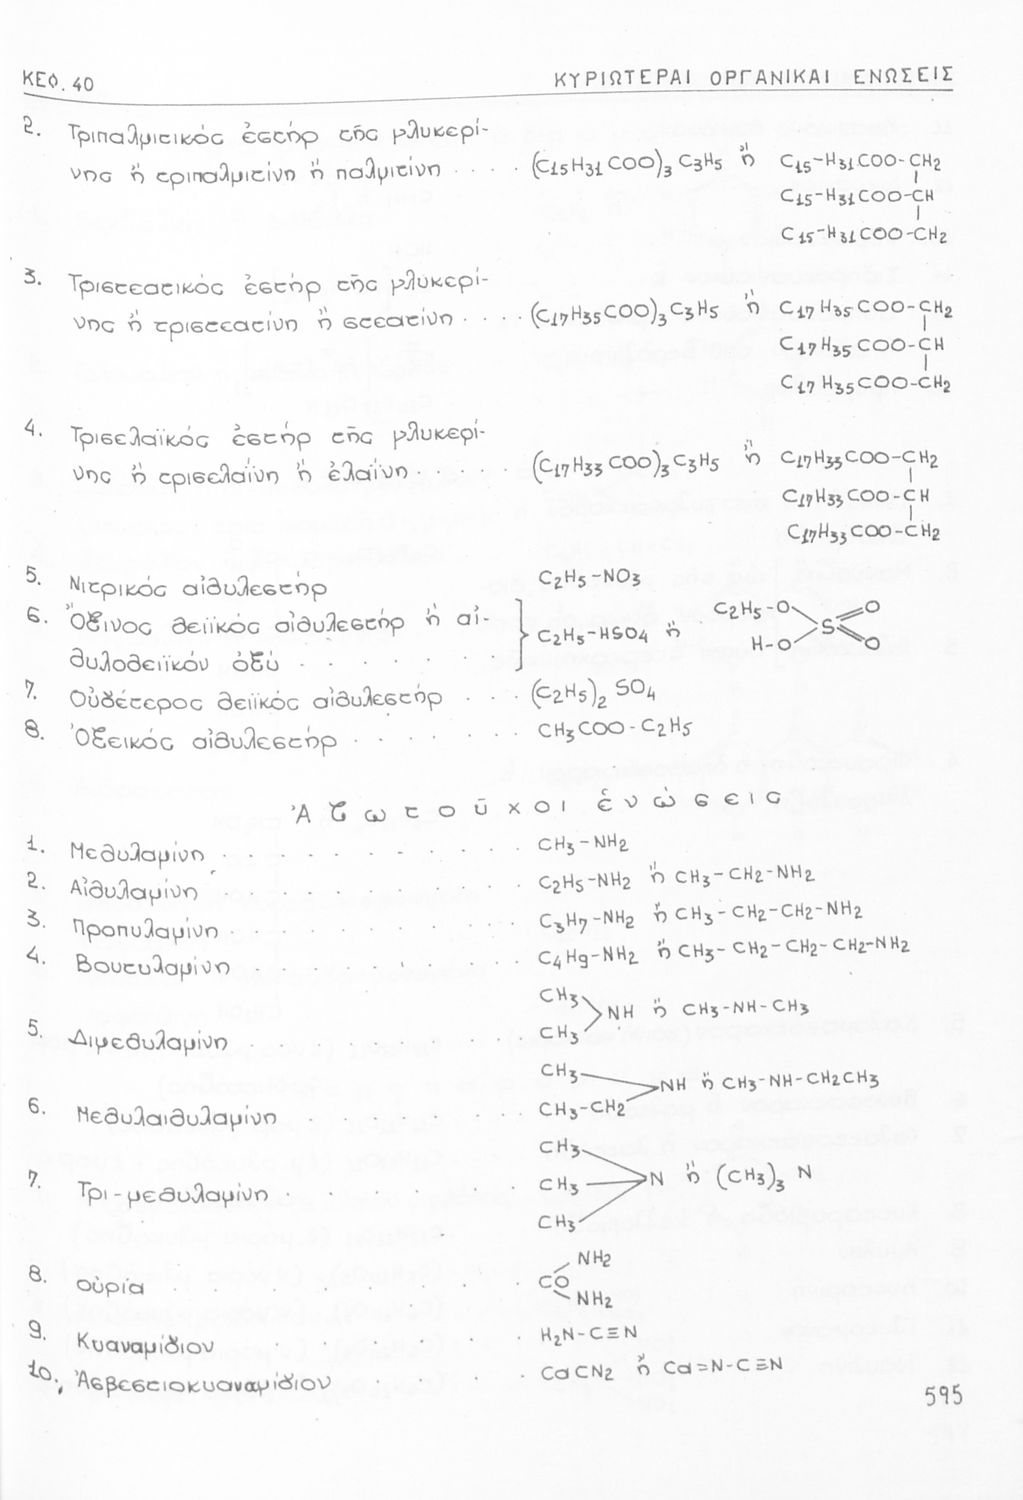 ΚΕΦ. 40 ΚΥΡΙΩΤΕΡΑΙ ΟΡΓΑΝΙΚΑΙ ΕΝΩΣΕΙΣ
2. Τριπαλμιτικός ἐστήρ τῆς γλυκερί-
νης ἤ τριπαλμιτίνη ἤ παλμιτίνη · · · · (C15H31COO)3 C3H5 ἤ C15-H31COO-CH2
C15-H31COO-CH
C15-H31COO-CH2
3. Τριστεατικός ἐστήρ τῆς γλυκερί-
νης ἤ τριστεατίνη ἤ στεατίνη · · · · (C17H35COO)3C3H5 ἤ C17H35COO-CH2
C17H35COO-CH
C17H35COO-CH2
4. Τρισελαϊκός ἐστήρ τῆς γλυκερί-
νης ἤ τρισελαΐνη ἤ ἐλαΐνη · · · · · (C17H33COO)3C3H5 ἤ C17H33COO-CH2
C17H33COO-CH
C17H33COO-CH2
5. Νιτρικός αἰθυλεστήρ C2H5-NO3
6. Ὄξινος θειϊκός αἰθυλεστήρ ἤ αἰ-
θυλοθειϊκόν ὀξύ · · · · · C2H5-HSO4 ἤ C2H5-O H-O S O O
7. Οὐδέτερος θειϊκός αἰθυλεστήρ · · · (C2H5)2 SO4
8. Ὀξεικός αἰθυλεστήρ · · · · · · CH3COO-C2H5
Ἀζωτοῦχοι ἑνώσεις
1. Μεθυλαμίνη · · · · · · · · · CH3-NH2
2. Αἰθυλαμίνη · · · · · · · · · C2H5-NH2 ἤ CH3-CH2-NH2
3. Προπυλαμίνη · · · · · · · · · C3H7-NH2 ἤ CH3-CH2-CH2-NH2
4. Βουτυλαμίνη · · · · · C4H9-NH2 ἤ CH3-CH2-CH2-CH2-NH2
CH3
NH ἤ CH3-NH-CH3
5. Διμεθυλαμίνη · · · · · · · CH3
CH3
NH ἤ CH3-NH-CH2CH3
6. Μεθυλαιθυλαμίνη · · · · · · CH3-CH2
CH3
7. Τρι-μεθυλαμίνη · · · · · · CH3 N ἤ (CH3)3 N
CH3
NH2
8. οὐρία · · · · · · · · CO
NH2
9. Κυαναμίδιον · · · · · · · · H2N-C≡N
10. Ἀσβεστιοκυαναμίδιον · · · · · CaCN2 ἤ Ca=N-C≡N
595